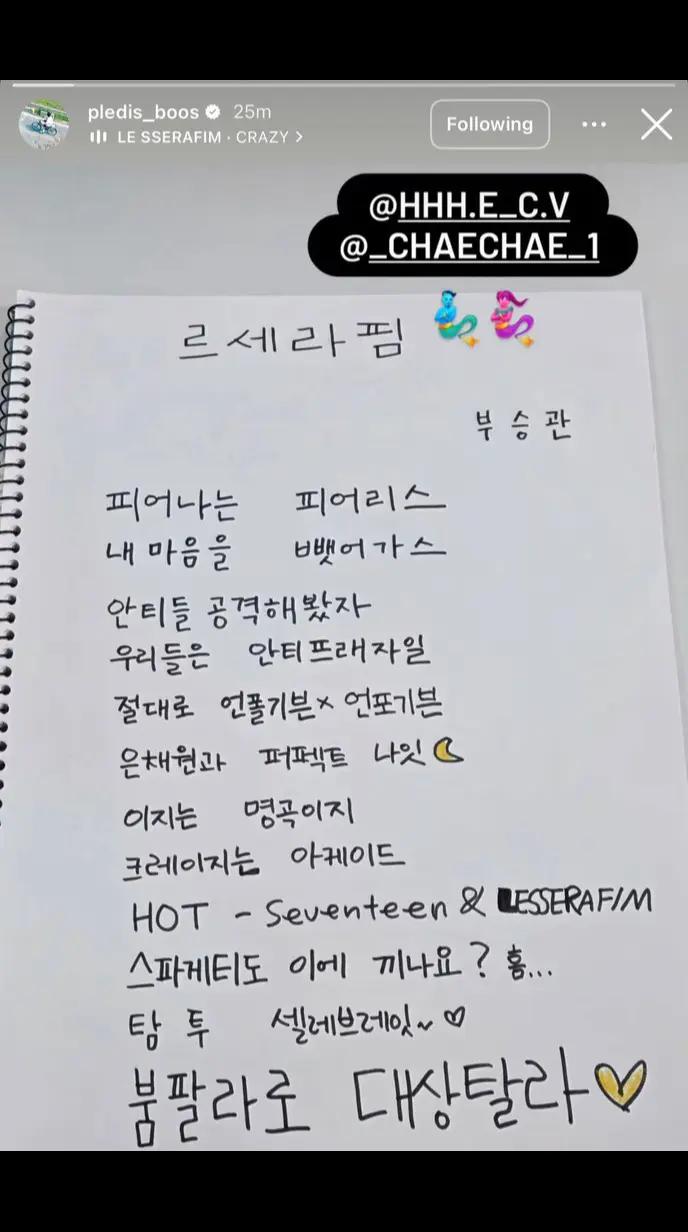 pledis_boos 25m
Following
LE SSERAFIM · CRAZY >
@HHH.E_C.V
@_CHAECHAE_1
르세라핌
부승관
피어나는 피어리스
내 마음을 뺏어가스
안티들 공격해봤자
우리들은 안티프래자일
절대로 언폴기븐× 언포기븐
은채원과 퍼펙트 나잇
이지는 명곡이지
크레이지는 아케이드
HOT - Seventeen & LESSERAFIM
스파게티도 이에 끼나요? 흠...
탐 투 셀레브레잇~ ♡
붐팔라로 대상탈라